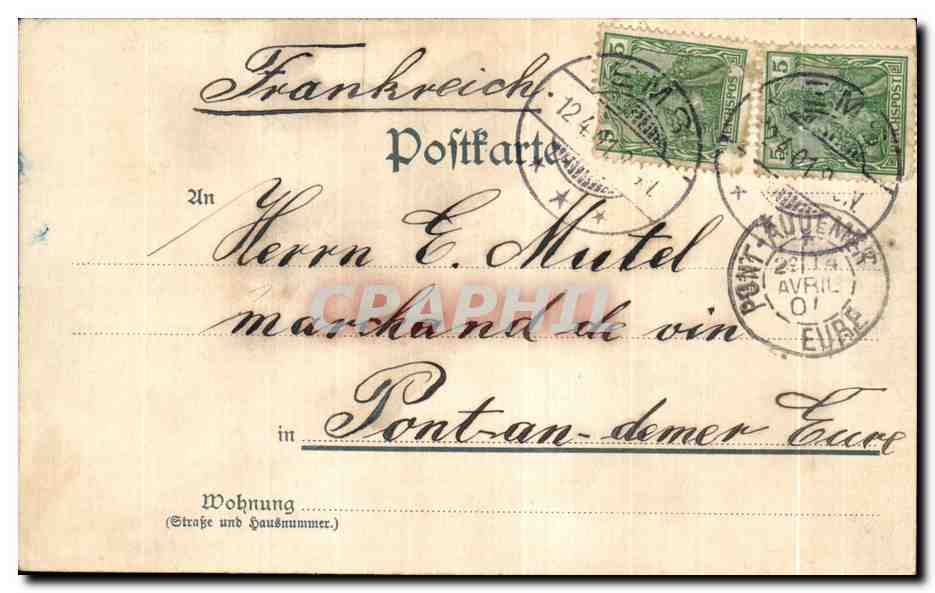 Frankreich.
Postkarte
5
5
REICHSPOST
12.4.01
An
Herrn E. Mutel
PONT-AUDEMER
AVRIL
01
EURE
CPAPHIL
marchand de vin
in Pont-an-demer Eure
Wohnung
(Straße und Hausnummer.)